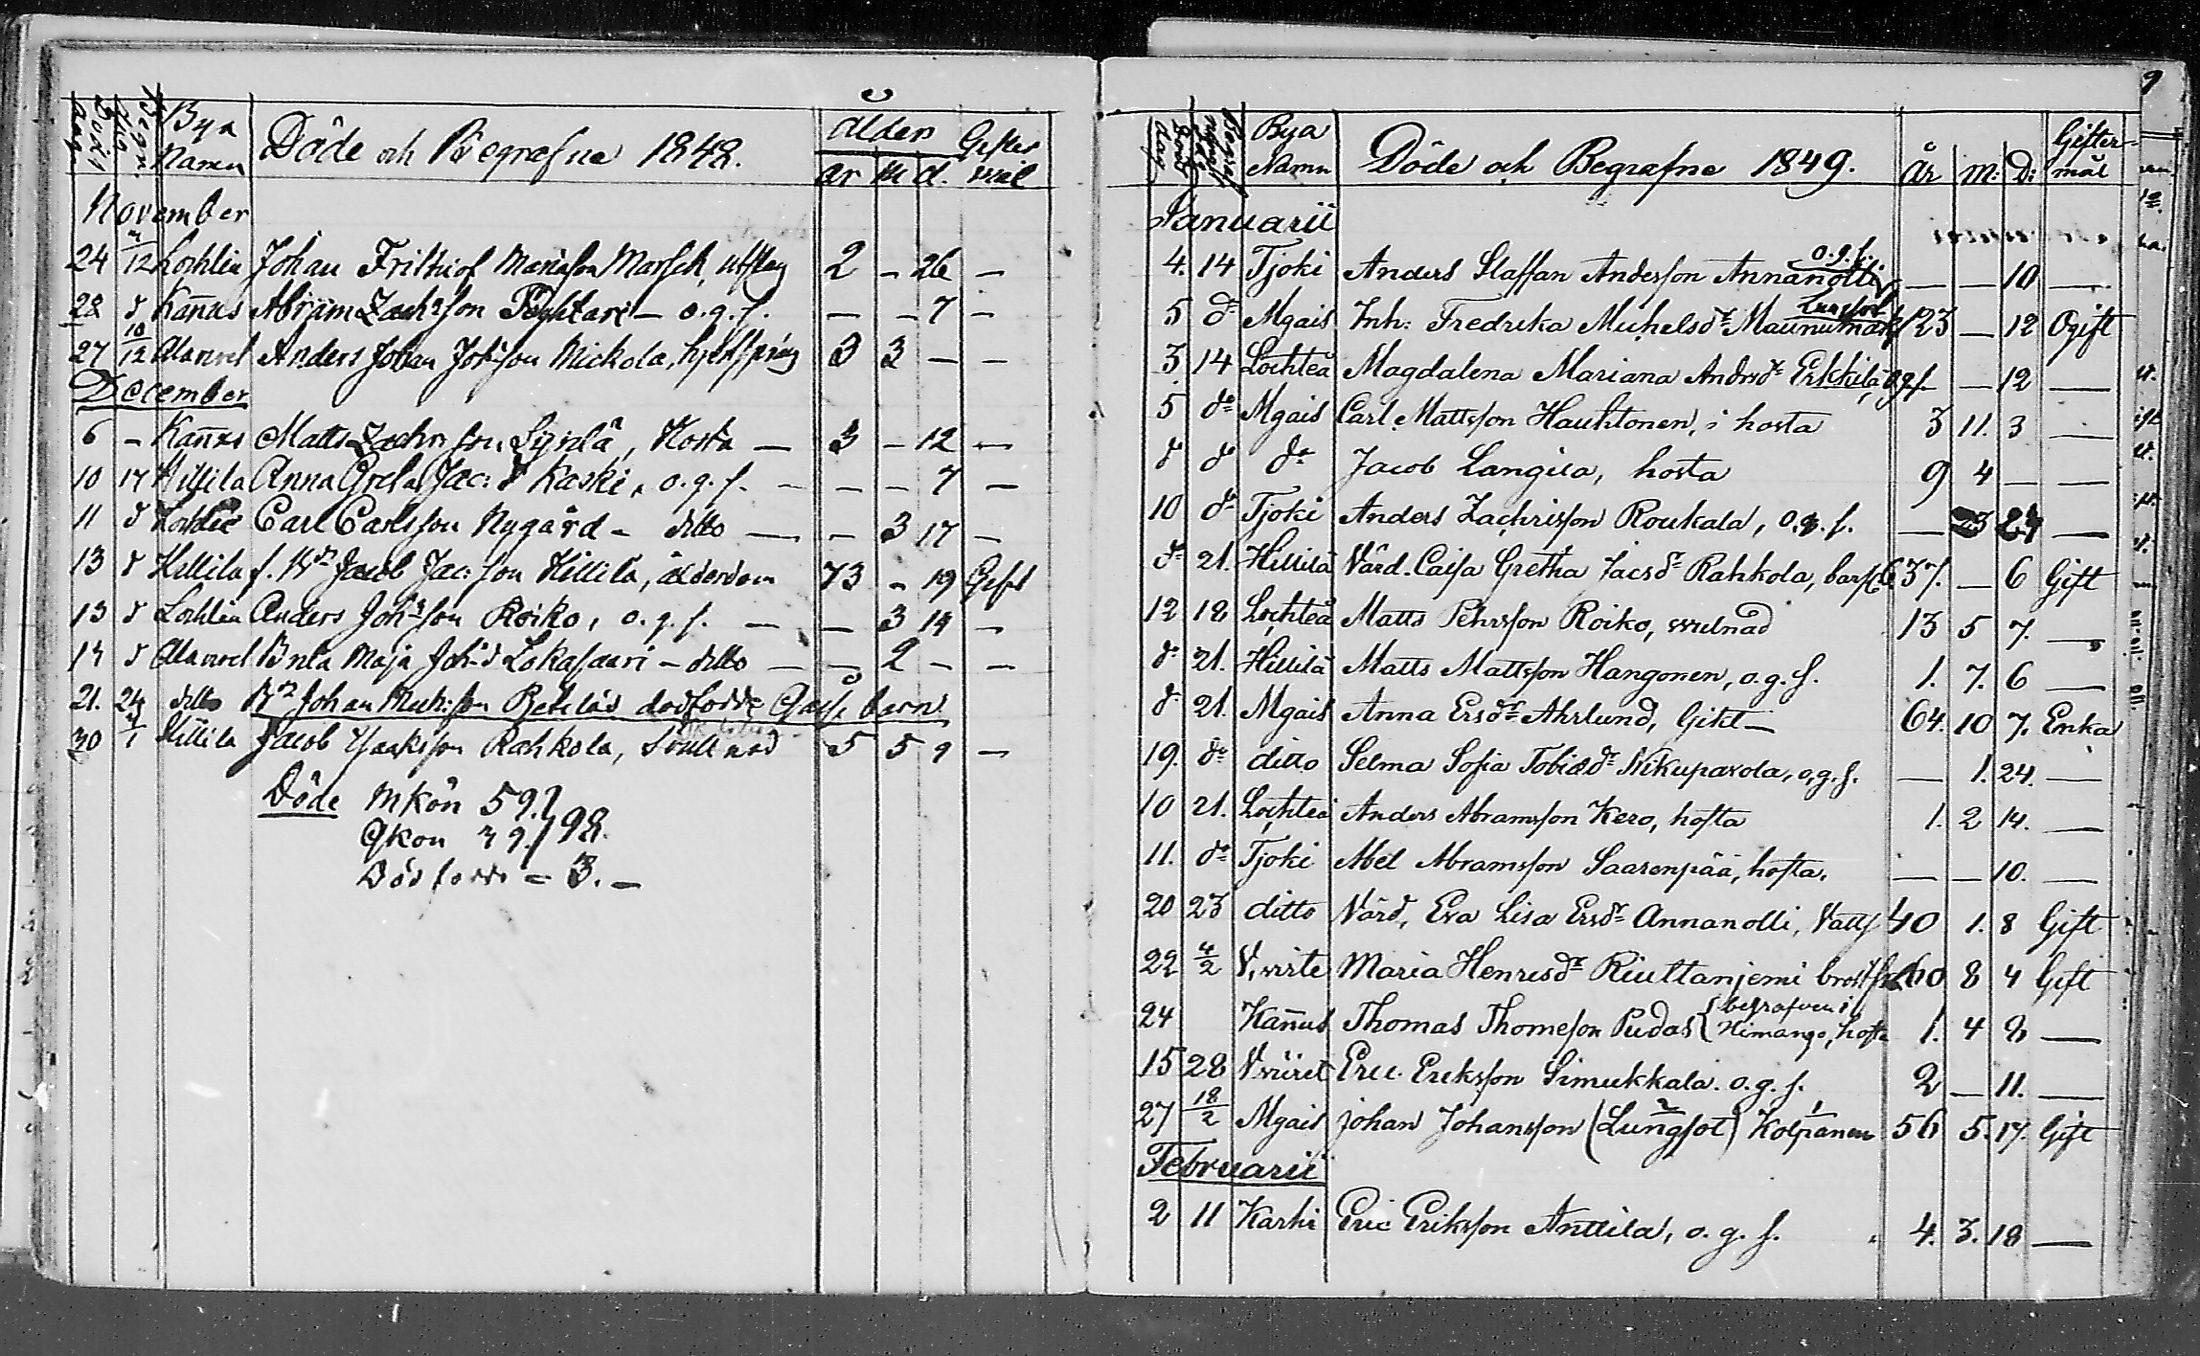 Död dag
Begr: dag
Bya Namn
Döde och Begrafne 1848.
ålder
år m d.
Giftermål
November
24 3/12 Lochteå Johan Frithiof Mariæson Marsch, utslag 2 – 26 –
28 d Kañus Abram Zachrsson – o. g. s. – – 7 –
27 10/12 Alaveel Anders Johan Johsson Mickola, 3 3 – –
December
6 – Kañus Matts Zachrsson, Hosta – 3 – 12 –
10 17 Hillila Anna Greta Jac: d Kaski, o. g. s. – – – 7 –
11 d Lochteå Carl Carlsson Nygård – ditto – – 3 17 –
13 d Hillila f. Bn Jacob Jac: son Hillilä, ålderdom 73 – 19 Gift
13 d Lochteå Anders Johsson Roiko, o. g. s. – – 3 14 –
14 d Alaveel Brita Maja Joh: d Lokasaari – ditto – – 2 – –
21. 24 ditto Bn Johan Mich: son dödfödde barn
30 4/1 Hillila Jacob Isaaksson Rahkola, Svullnad 5 5 9 –
Döde Mkön 59.
Qkön 39. } 98.
Dödfödde = 3. –
9
Död dag
Begrafnings dag
Bya Namn
Döde och Begrafne 1849.
År M: D:
Giftermål
Januarii
4. 14 Tjoki Anders Staffan Andersson Annanolli o. g. s. — — 10 —
5 do Mgais Inh: Fredrika Michelsdr Maunumäki Lungsot 23 — 12 Ogift
3 14 Lochteå Magdalena Mariana Andrsdr Erkkilä, ogs — 12 —
5 do Mgais Carl Mattsson Hauhtonen, i hosta 3 11. 3 —
d do do Jacob Langila, hosta 9 4 — —
10 do Tjoki Anders Zachrisson Roukala, o. g. s. — 3 24 —
do 21. Hillilä Värd. Caisa Gretha Jacsdr Rahkola, bars 37. — 6 Gift
12 18 Lochteå Matts Pehrsson Roiko, svulnad 13 5 7. —
do 21. Hillilä Matts Mattsson Hangonen, o. g. s. 1. 7. 6 —
d 21. Mgais Anna Ersdr Ahrlund, Gikt — 64. 10 7. Enka
19. do ditto Selma Sofia Tobiædr Nikupavola, o. g. s. — 1. 24. —
10 21. Lochteå Anders Abramsson Kero, hosta 1. 2 14. —
11. do Tjoki Abel Abramsson Saarenpää, hosta. — — 10. —
20 23 ditto Värd, Eva Lisa Ersdr Annanolli,Ватts 40 1. 8 Gift
22 4/2 V,virte Maria Henrisdr Riuttanjemi 60 8 4 Gift
24 Kañus Thomas Thomeson Pudas { begrafven i Himango, hosta 1. 4 8 —
15 28 Vviiret Eric Eriksson Simukkala. o. g. s. 2 — 11. —
27 18/2 Mgais Johan Johansson (Lungsot) Kolpanen 56 5. 17. Gift
Februarii
2 11 Karhi Eric Eriksson Anttila, o. g. s. 4. 3. 18 —